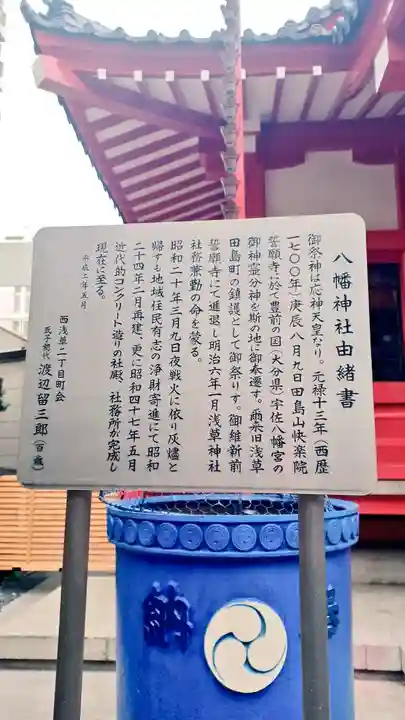 八幡神社由緒書
御祭神は応神天皇なり。元禄十三年(西歴
一七〇〇年)庚辰八月九日田島山快楽院
誓願寺に於て豊前の国(大分県)宇佐八幡宮の
御神霊分神を斯の地に御奉遷す。爾来旧浅草
田島町の鎮護として御祭りす。御維新前
誓願寺にて進退し明治六年一月浅草神社
社務兼勤の命を蒙る。
昭和二十年三月九日夜戦火に依り灰燼と
帰すも地域任民有志の浄財寄進にて昭和
二十四年二月再建、更に昭和四十七年五月
近代的コンクリート造りの社殿、社務所が完成し
現在に至る。
平成二年五月
西浅草二丁目町会
氏子総代 渡辺留三郎(百歳)